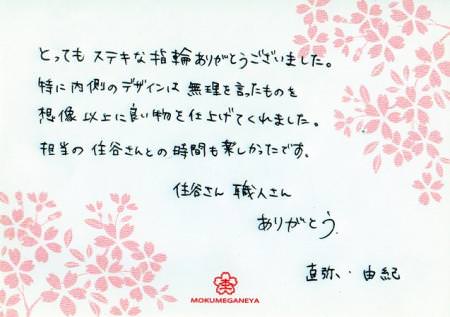 とっても ステキな指輪ありがとうございました。
特に内側のデザインは 無理を言ったものを
想像以上に良い物を仕上げてくれました。
担当の 住谷さんとの時間も楽しかったです。
住谷さん 職人さん
ありがとう
直弥、由紀
MOKUMEGANEYA